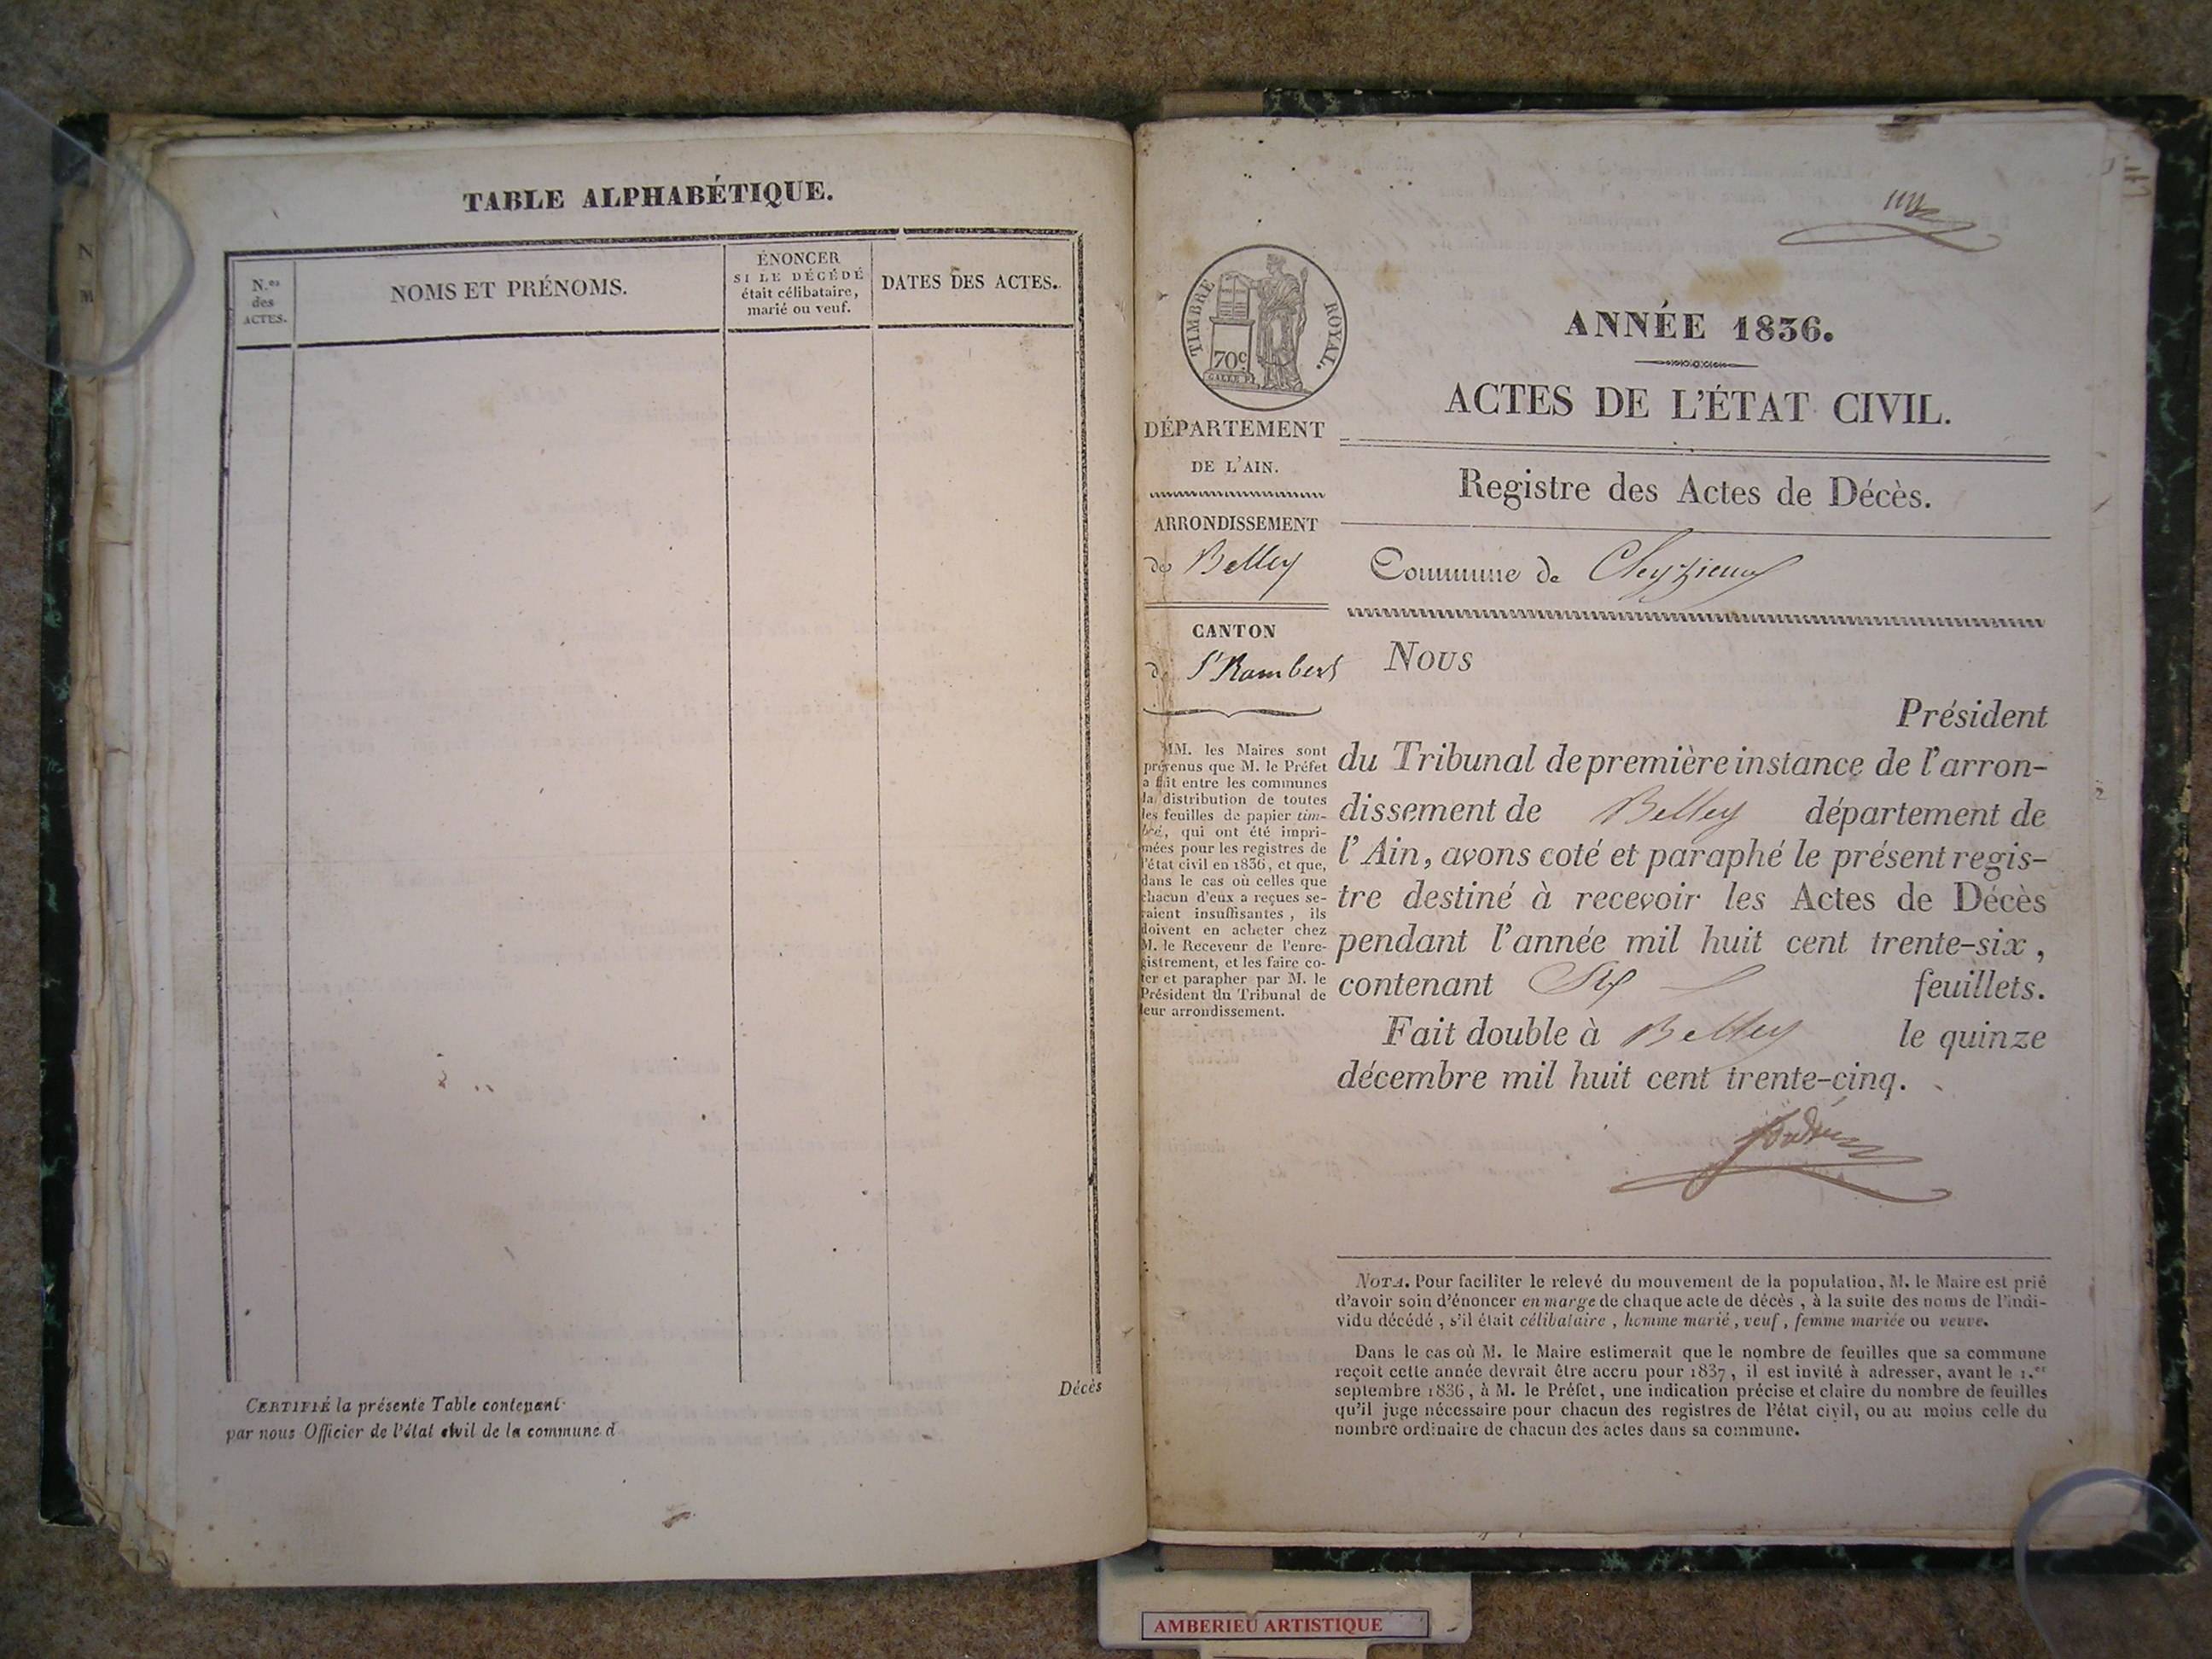 TABLE ALPHABÉTIQUE.
N.os
des
ACTES.
NOMS ET PRÉNOMS.
ÉNONCER
SI LE DÉCÉDÉ
était célibataire,
marié ou veuf.
DATES DES ACTES.
Décès
CERTIFIÉ la présente Table contenant
par nous Officier de l'état civil de la commune d
TIMBRE ROYAL.
70c
DÉPARTEMENT
DE L'AIN.
ARRONDISSEMENT
de Belley
CANTON
de St Rambert
MM. les Maires sont
prévenus que M. le Préfet
a fait entre les communes
la distribution de toutes
les feuilles de papier tim-
bré, qui ont été impri-
mées pour les registres de
l'état civil en 1836, et que,
dans le cas où celles que
chacun d'eux a reçues se-
raient insuffisantes, ils
doivent en acheter chez
M. le Receveur de l'enre-
gistrement, et les faire co-
ter et parapher par M. le
Président du Tribunal de
leur arrondissement.
ANNÉE 1836.
ACTES DE L'ÉTAT CIVIL.
Registre des Actes de Décès.
Commune de Cleyzieux
Nous
Président
du Tribunal de première instance de l'arron-
dissement de Belley département de
l'Ain, avons coté et paraphé le présent regis-
tre destiné à recevoir les Actes de Décès
pendant l'année mil huit cent trente-six,
contenant Six feuillets.
Fait double à Belley le quinze
décembre mil huit cent trente-cinq.
NOTA. Pour faciliter le relevé du mouvement de la population, M. le Maire est prié
d'avoir soin d'énoncer en marge de chaque acte de décès, à la suite des noms de l'indi-
vidu décédé, s'il était célibataire, homme marié, veuf, femme mariée ou veuve.
Dans le cas où M. le Maire estimerait que le nombre de feuilles que sa commune
reçoit cette année devrait être accru pour 1837, il est invité à adresser, avant le 1.er
septembre 1836, à M. le Préfet, une indication précise et claire du nombre de feuilles
qu'il juge nécessaire pour chacun des registres de l'état civil, ou au moins celle du
nombre ordinaire de chacun des actes dans sa commune.
AMBERIEU ARTISTIQUE